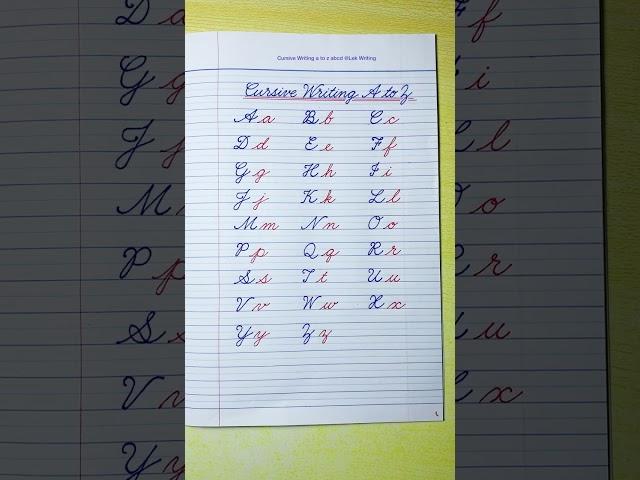 Cursive Writing a to z abcd @Lek Writing
Cursive Writing A to Z
A a B b C c
D d E e F f
G g H h I i
J j K k L l
M m N n O o
P p Q q R r
S s T t U u
V v W w X x
Y y Z z